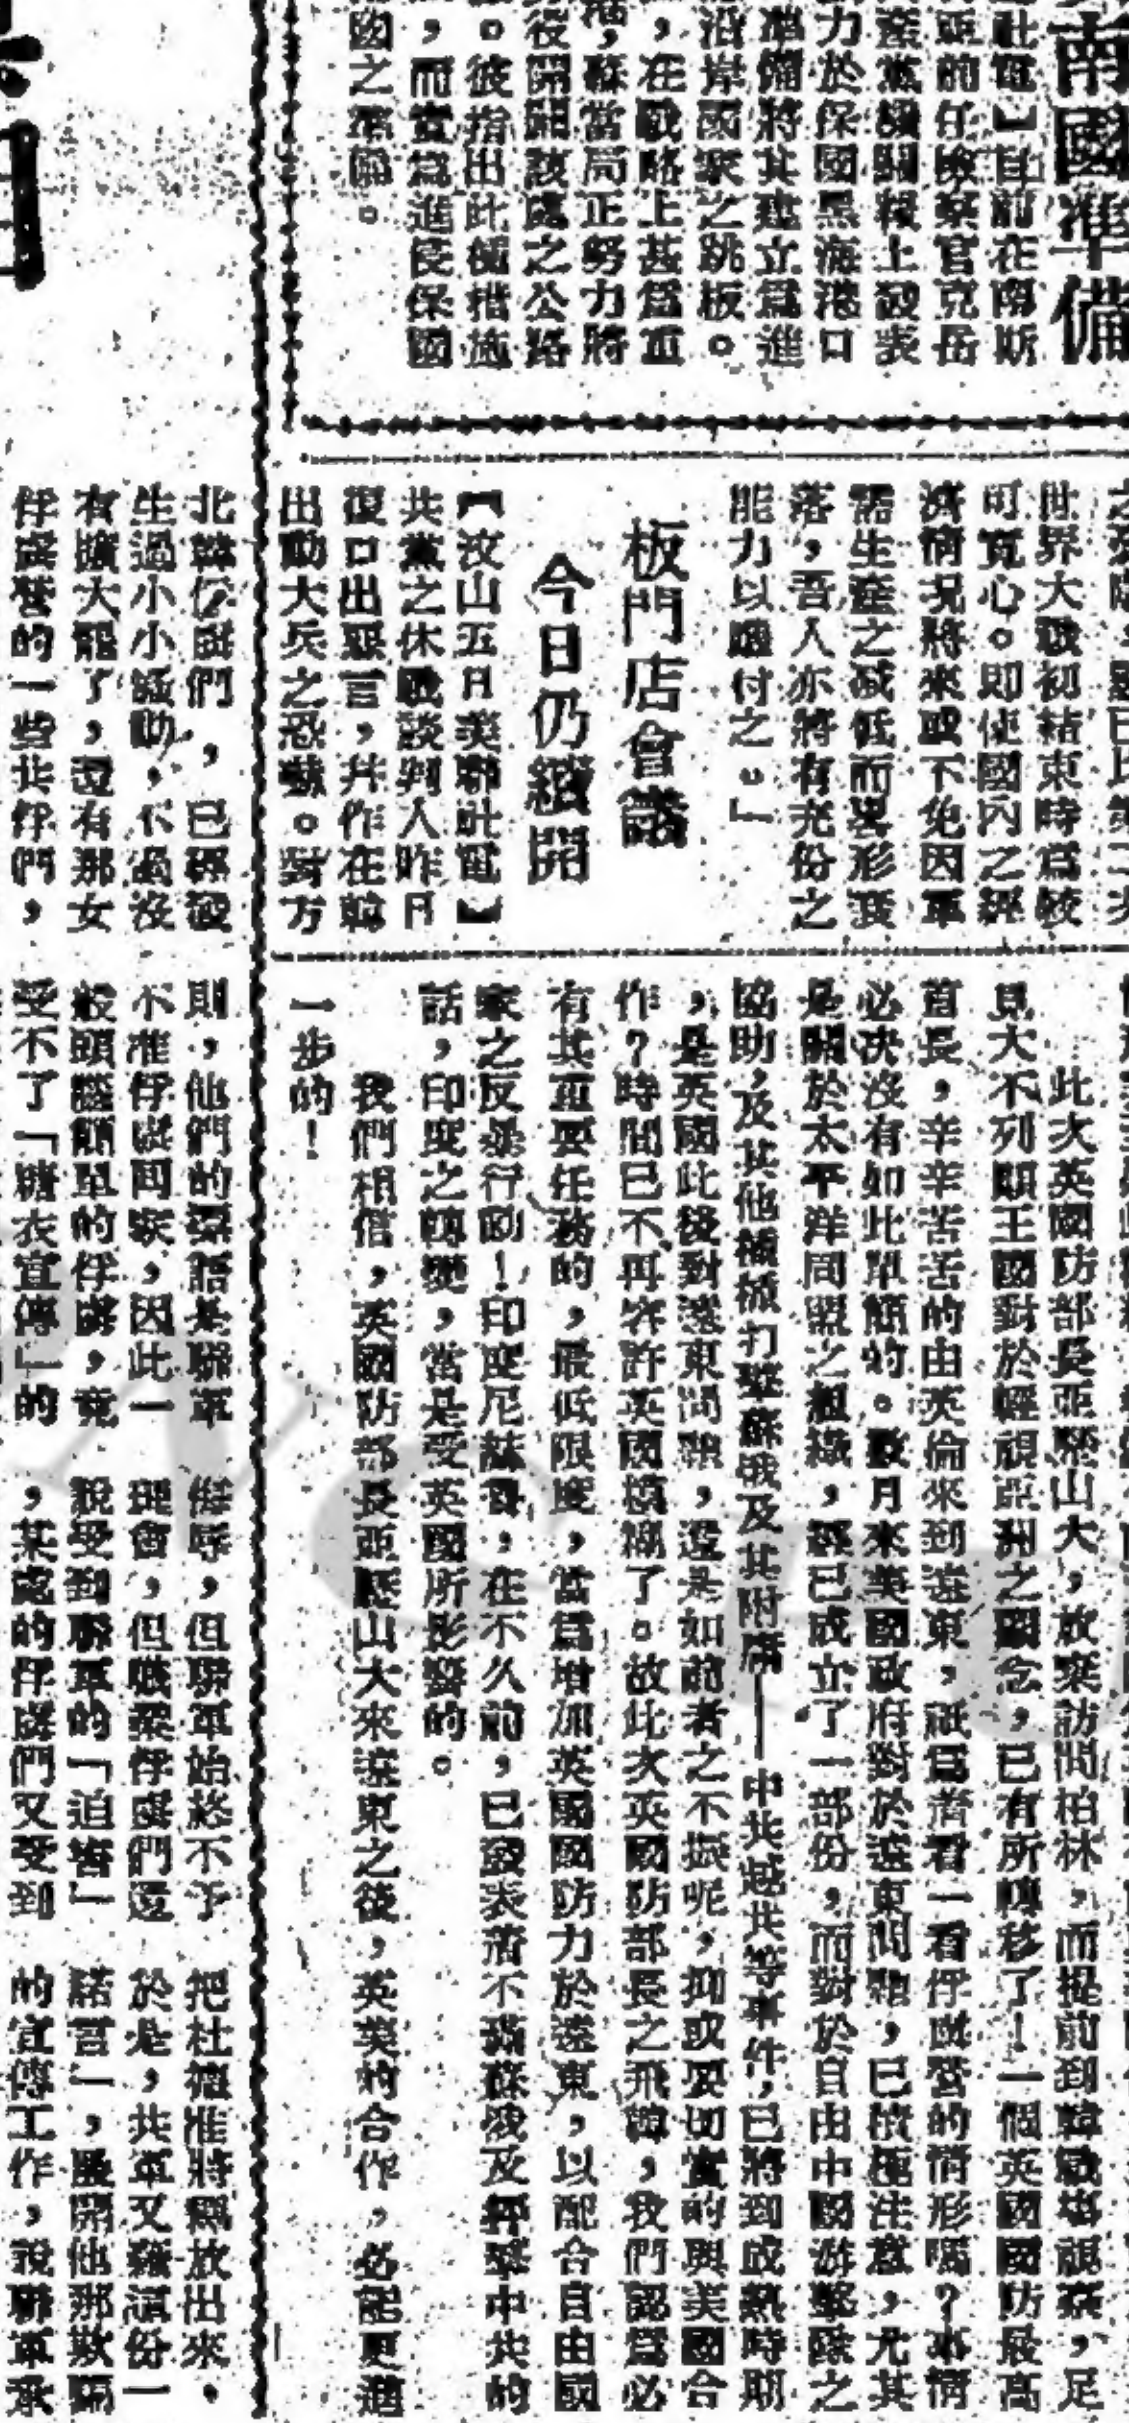 南國準備
社電】目前在南斯
亞前任檢察官克岳
產黨機關報上發表
力於保國黑海港口
準備將其建立爲進
沿岸國家之跳板。
,在戰略上甚爲重
,蘇當局正努力將
役開闢該處之公路
。彼指出此種措施
,而實爲進侵保國
國之準備。
世界大戰初結束時爲較
可寬心。即使國內之經
濟情况將來或不免因軍
需生產之減低而畧形衰
落,吾人亦將有充份之
能力以應付之。」
板門店會議
今日仍續開
【汶山五日美聯社電】
共黨之休戰談判人昨日
復口出惡言,幷作在韓
出動大兵之恐嚇。對方
此次英國防部長亞歷山大,放棄訪問柏林,而提前到韓戰塲視察,足
見大不列顚王國對於輕視亞洲之觀念,已有所轉移了!一個英國國防最高
首長,辛辛苦苦的由英倫來到遠東,祇爲着看一看俘虜營的情形嗎?事情
必决沒有如此單簡的。數月來美國政府對於遠東問題,已積極注意,尤其
是關於太平洋同盟之組織,經已成立了一部份,而對於自由中國游擊隊之
協助,及其他積極打擊蘇俄及其附庸——中共越共等事件,已將到成熟時期
,是英國此後對遠東問題,還是如前者之不振呢,抑或要切實的與美國合
作?時間已不再容許英國模糊了。故此次英國防部長之飛韓,我們認爲必
有其重要任務的,最低限度,當爲增加英國國防力於遠東,以配合自由國
家之反暴行動!印度尼赫魯,在不久前,已發表着不滿蘇俄及抨擊中共的
話,印度之轉變,當是受英國所影響的。
我們相信,英國防部長亞歷山大來遠東之後,英美的合作,必能更進
一步的!
北韓俘虜們,已經發
生過小小騷動,不過沒
有擴大罷了,還有那女
俘虜營的一些共俘們,
則,他們的標語是聯軍
不准俘虜回家,因此一
般頭腦簡單的俘虜,竟
受不了「糖衣宣傳」的
侮辱,但聯軍始終不予
理會,但戰犯俘虜們還
說受到聯軍的「迫害」
,某處的俘虜們又受到
把杜德准將釋放出來。
於是,共軍又藉這份一
諾言一,展開他那欺騙
的宣傳工作,說聯軍承